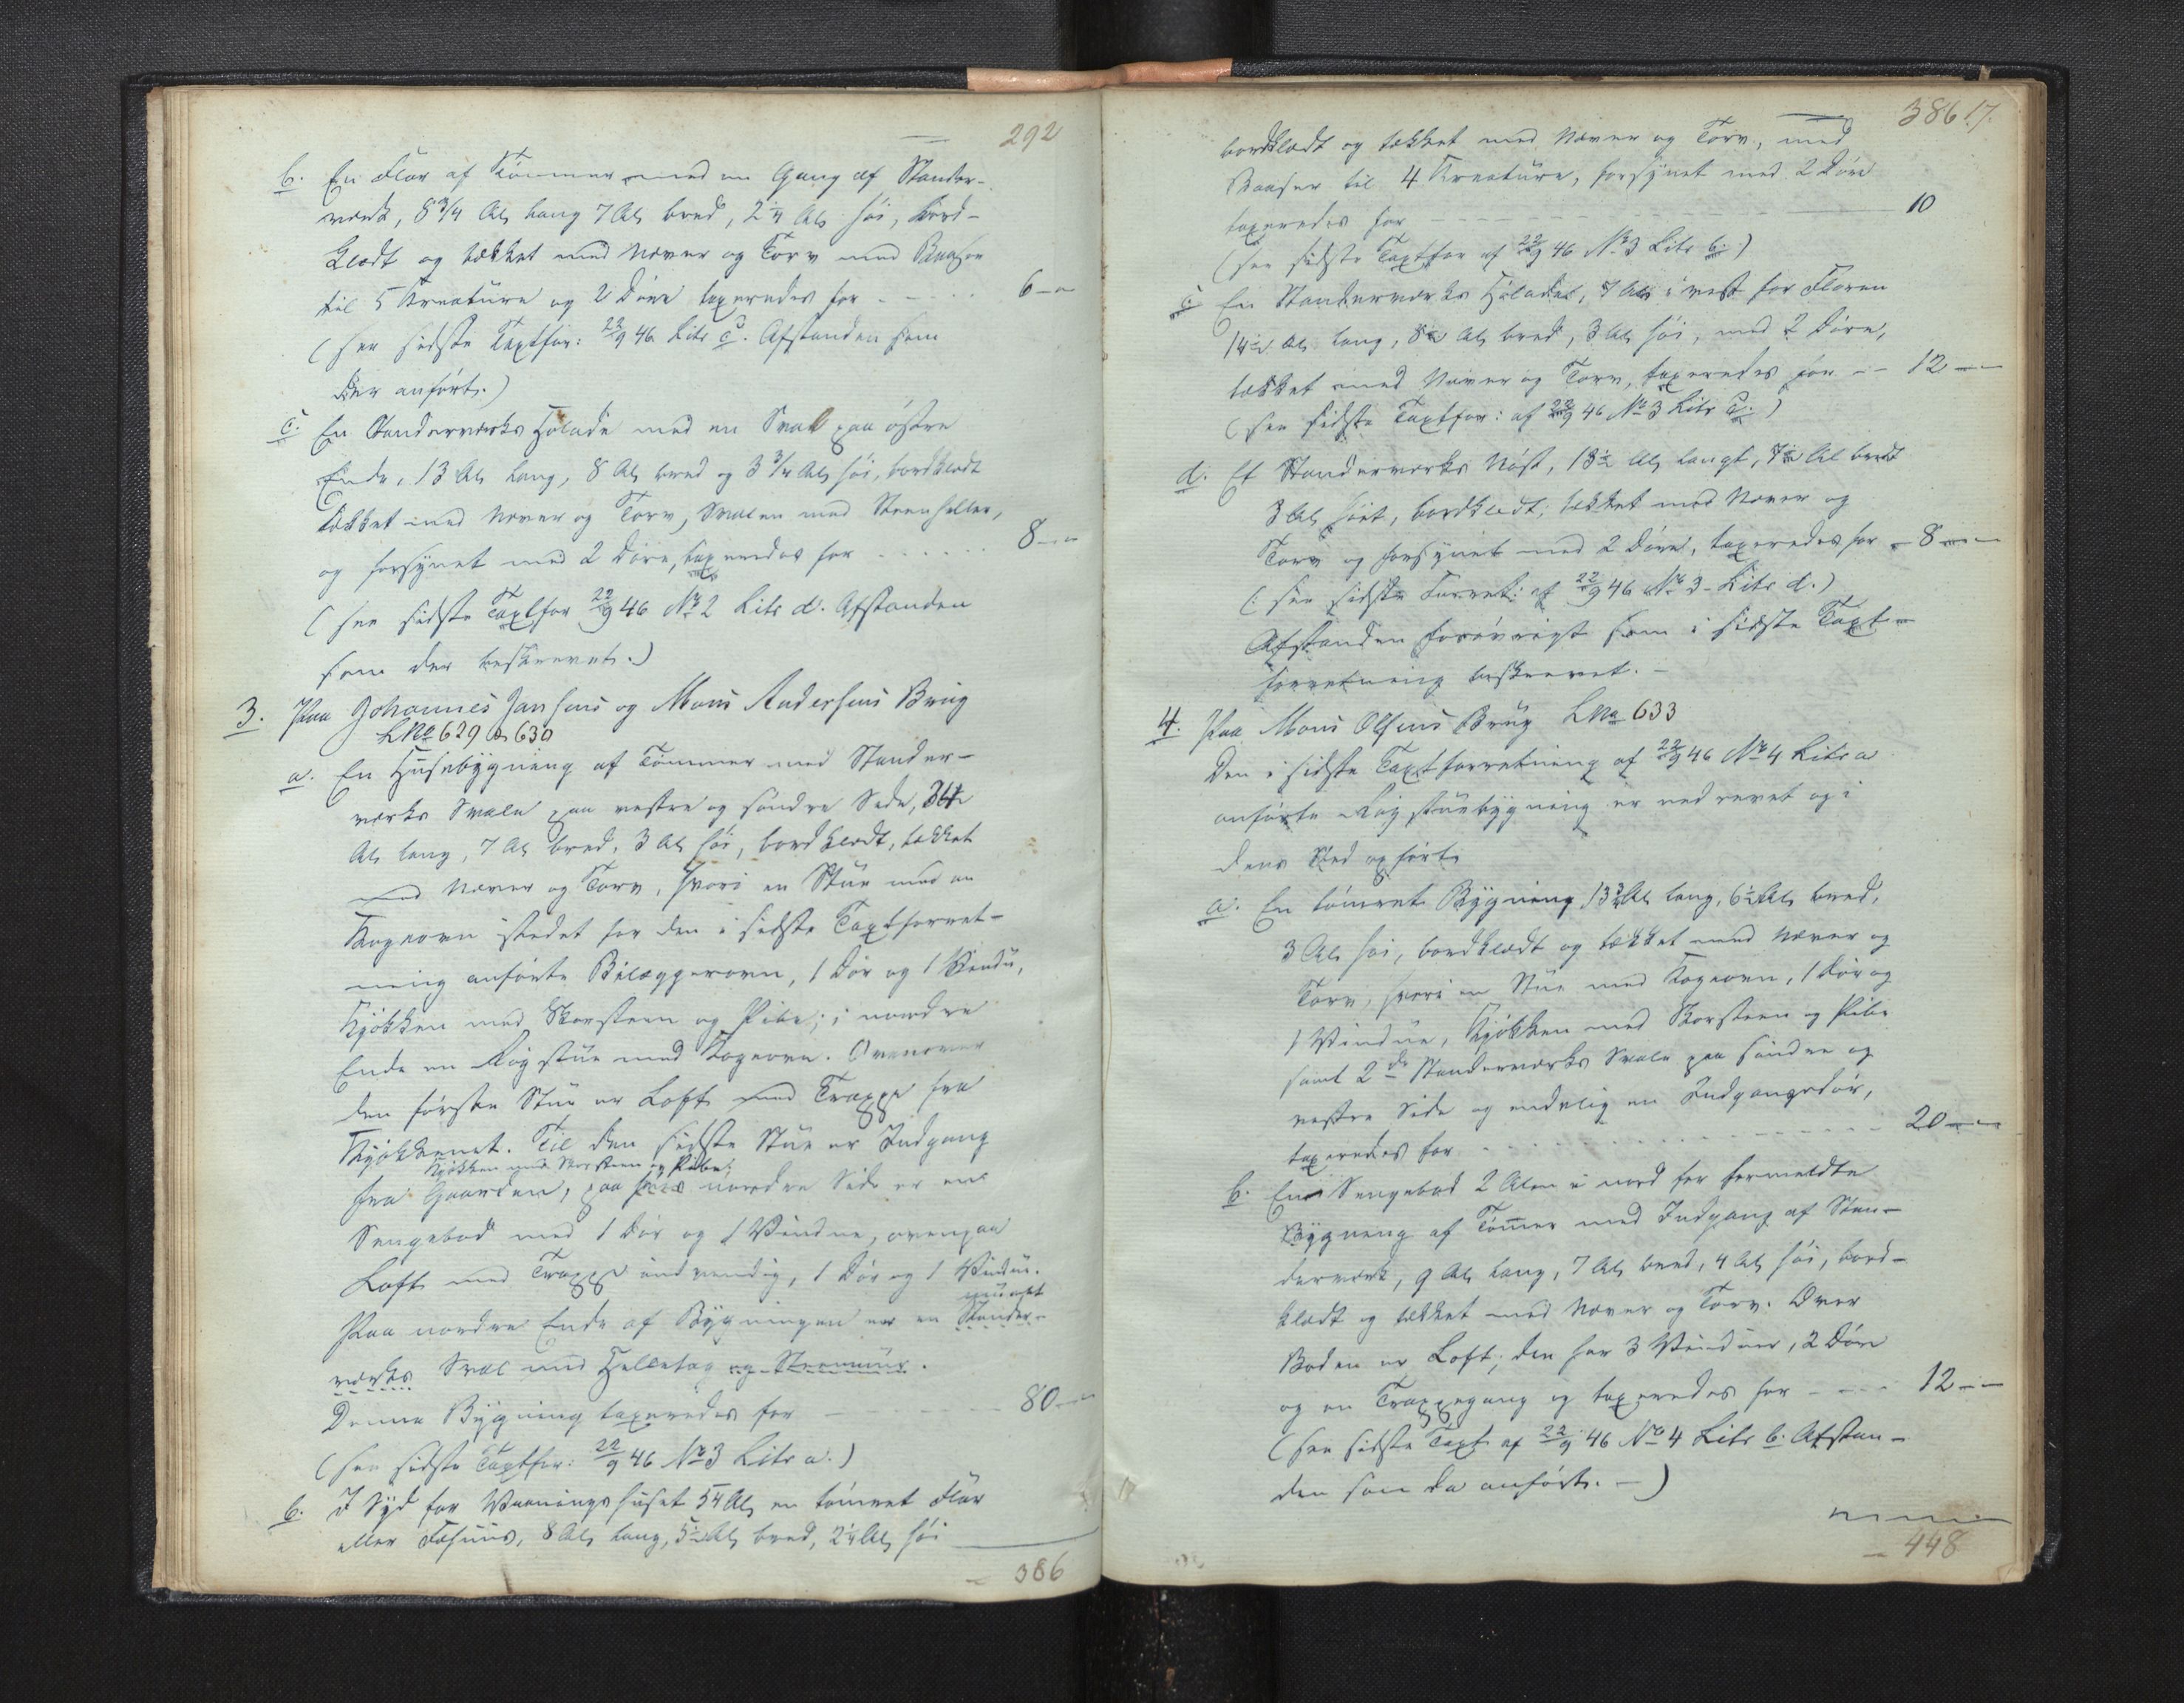 292
b. En Flor af Tømmer med en Gang af Stander-
værk, 8 3/4 Al lang 7 Al bred, 2 1/4 Al høi, bord-
klædt og tækket med Næver og Torv med Baase
til 5 Kreature og 2 Døre taxeredes for - - - - 6 -"-
(see sidste Taxtfor: 22/9 46 Litr c. Afstanden som
der anført.)
c. En Standerværks Hølade med en Sval paa østre
Ende, 13 Al lang, 8 Al bred og 3 3/4 Al høi, bordklædt
tækket med Næver og Torv, Svalen med Steenheller,
og forsynet med 2 Døre, taxeredes for - - - - - - 8 -"-
(see sidste Taxtfor 22/9 46 No 2 Litr d. Afstanden
som der beskrevet.)
3. Paa Johannes Jansens og Mons Andersens Brug
LNo 629 & 630
a. En Husebygning af Tømmer med Stander-
værks Svale paa vestre og søndre Side, 24
Al lang, 7 Al bred, 3 Al høi, bordklædt, tækket
med Næver og Torv, hvori en Stue med en
Kogeovn istedet for den i sidste Taxtforret-
ning anførte Bilæggerovn, 1 Dør og 1 Vindu,
Kjøkken med Skorsteen og Pibe; i nordre
Ende en Røgstue med Rogeovn. Ovenover
den første Stue er Loft med Trappe fra
Kjøkkenet. Til den sidste Stue er Indgang
Kjøkken med Skorsteen og Pibe;
fra Gaarden, paa nordre Side er en
Sengebod med 1 Dør og 1 Vindue, ovenpaa
Loft med Trappe indvendig, 1 Dør og 1 Vindue.
muret
Paa nordre Ende af Bygningen er en Stander-
værks Sval med Helletag og Steenmuur.
Denne Bygning taxeredes for - - - - - - 80 -"-
(see sidste Taxtfor: 22/9 46 No 3 Litr a.)
b. I Syd for Vaaningshuset 54 Al en tømret Flor
eller Fæhuus, 8 Al lang, 5 1/2 Al bred, 2 1/4 Al høi
386
386 17.
bordklædt og tækket med Næver og Torv, med
Baaser til 4 Kreature, forsynet med 2 Døre
taxeredes for - - - - - - 10
(see sidste Taxtfor af 22/9 46 No 3 Litr b.)
c. En Standerværks Hølade, 7 Al i vest for Floren
14 1/2 Al lang, 8 1/2 Al bred, 3 Al høi, med 2 Døre,
tækket med Næver og Torv, taxeredes for - - 12 -"-
(see sidste Taxtfor: af 22/9 46 No 3 Litr c.)
d. Et Standerværks Nøst, 13 1/2 Al langt, 7 1/2 Al bredt
3 Al høit, bordklædt, tækket med Næver og
Torv og forsynet med 2 Døre, taxeredes for - 8 -"-
(: see sidste Forret: af 22/9 46 No 3 Litr d.)
Afstanden forøvrigt som i sidste Taxt-
forretning beskrevet. -
4. Paa Mons Olsens Brug LNo 633
Den i sidste Taxtforretning af 22/9 46 No 4 Litr a
anførte Røgstuebygning er nedrevet og i
dens Sted opført
a. En tømret Bygning 13 1/2 Al lang, 6 1/2 Al bred,
3 Al høi, bordklædt og tækket med Næver og
Torv, hvori en Stue med Kogeovn, 1 Dør og
1 Vindue, Kjøkken med Skorsteen og Pibe
samt 2de Standerværks Svale paa søndre og
vestre Side og endelig en Indgangsdør,
taxeredes for - - - - - - 20 -"-
b. En Sengebod 2 Alen i nord for formeldte
Bygning af Tømmer med Indgang af Stan-
derværk, 9 Al lang, 7 Al bred, 4 Al høi, bord-
klædt og tækket med Næver og Torv. Over
Boden er Loft; den har 3 Vinduer, 2 Døre
og en Trappegang og taxeredes for - - - - 12 -"-
(see sidste Taxt af 22/9 46 No 4 Litr b. Afstan-
den som da anført. -)
448